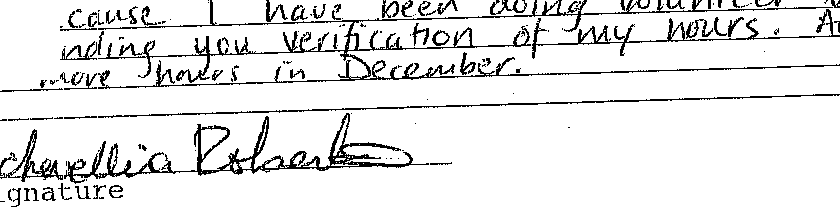 cause I have been doing volunteer
nding you verification of my hours.
more hours in December.
chevellia Roberts
gnature